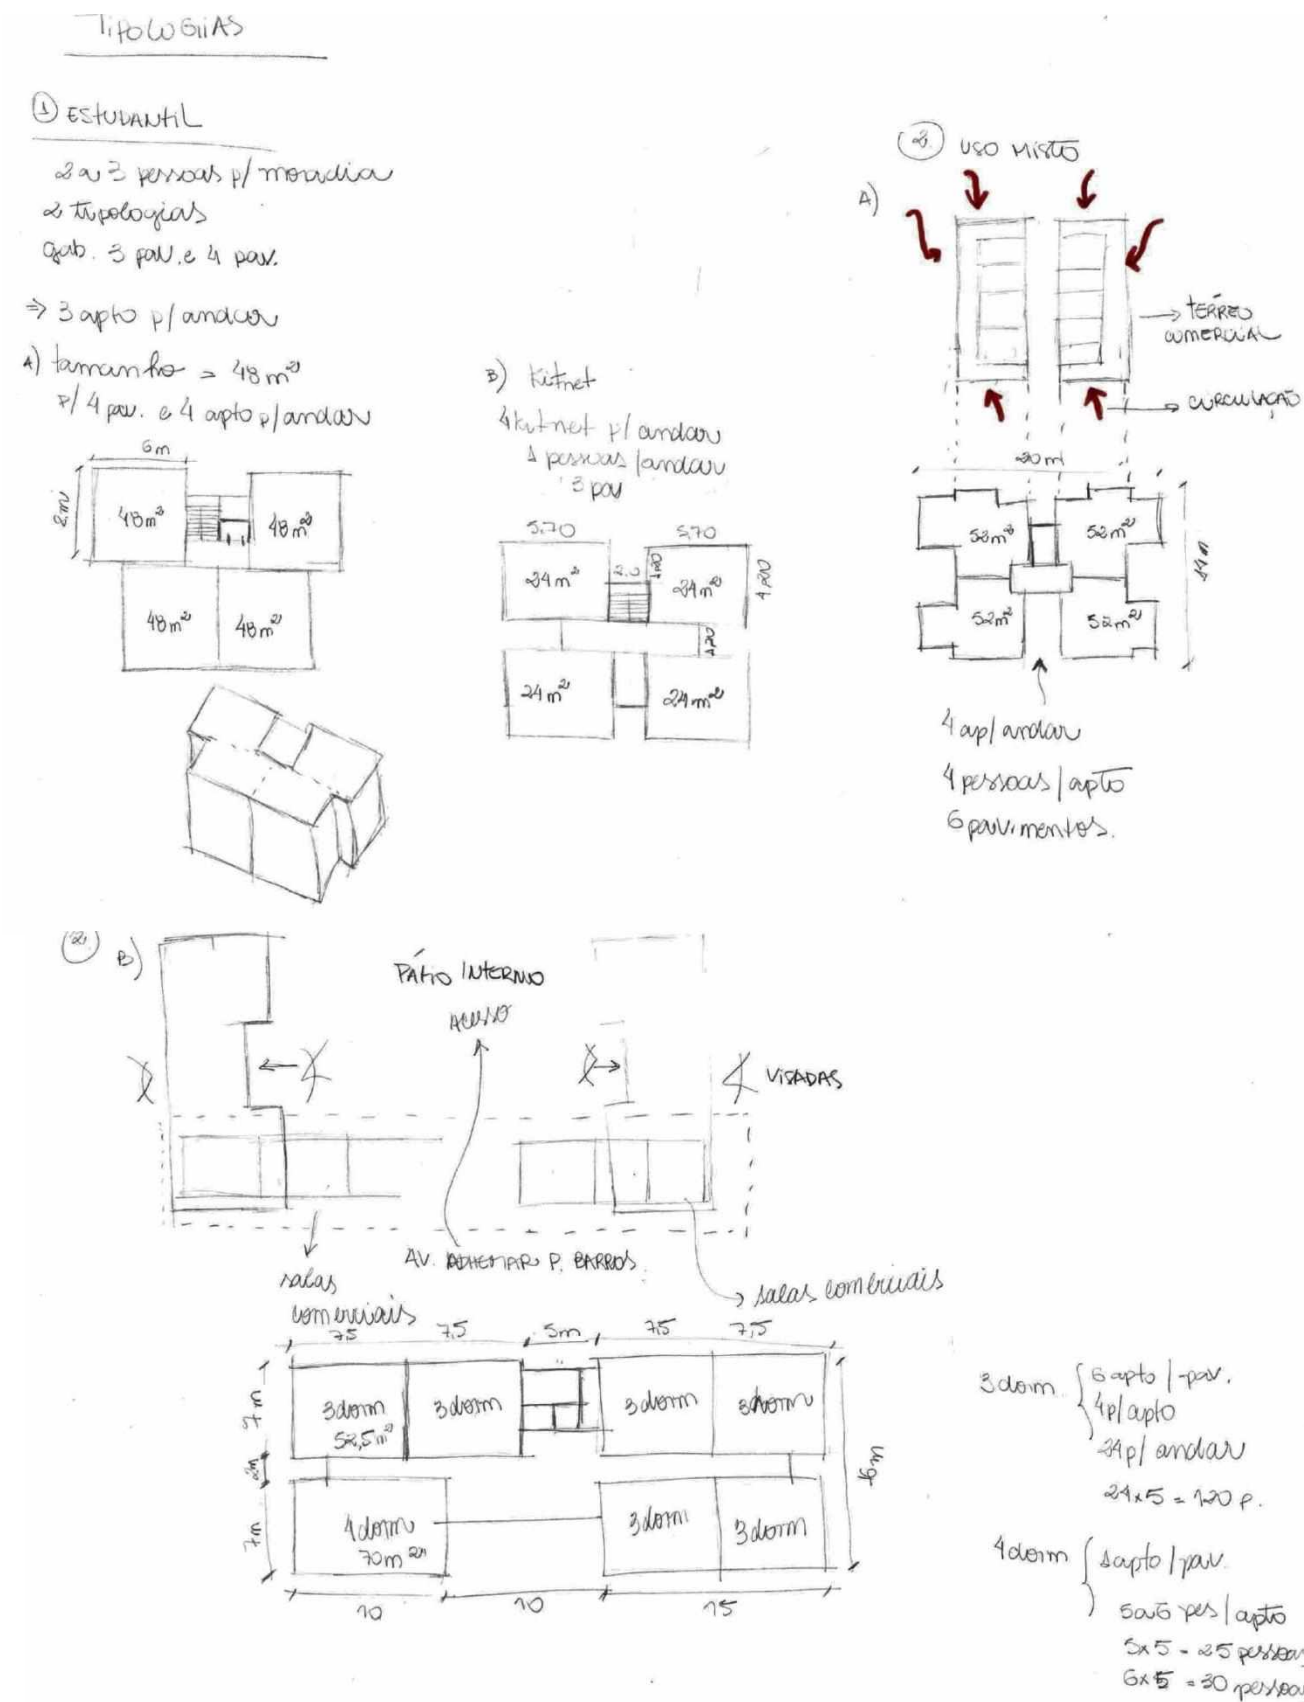 TIPOLOGIAS
① ESTUDANTIL
2 a 3 pessoas p/ moradia
2 tipologias
gab. 3 pav. e 4 pav.
⇒ 3 apto p/ andar
A) tamanho = 48m²
p/ 4 pav. e 4 apto p/ andar
6m
48m²
48m²
48m²
48m²
B) Kitnet
4 kitnet p/ andar
pessoas / andar
3 pav
5,70
5,70
24m²
2.0
1,20
24m²
1,20
24m²
24m²
2. USO MISTO
A)
→ TÉRREO
COMERCIAL
→ CIRCULAÇÃO
20m
52m²
52m²
14m
52m²
52m²
4 ap/ andar
4 pessoas / apto
6 pavimentos.
2. B)
PÁTIO INTERNO
ACESSO
VISADAS
AV. ADHEMAR P. BARROS.
salas
comerciais
→ salas comerciais
7,5
7,5
5m
7,5
7,5
7m
3dorm
52,5m²
3dorm
3dorm
3dorm
2m
7m
4dorm
70m²
3dorm
3dorm
10
10
15
3dorm { 6 apto / pav.
4p/ apto
24p/ andar
24x5 = 120 p.
4dorm { 1apto / pav.
5a6 pes / apto
5x5 = 25 pessoas
6x5 = 30 pessoas